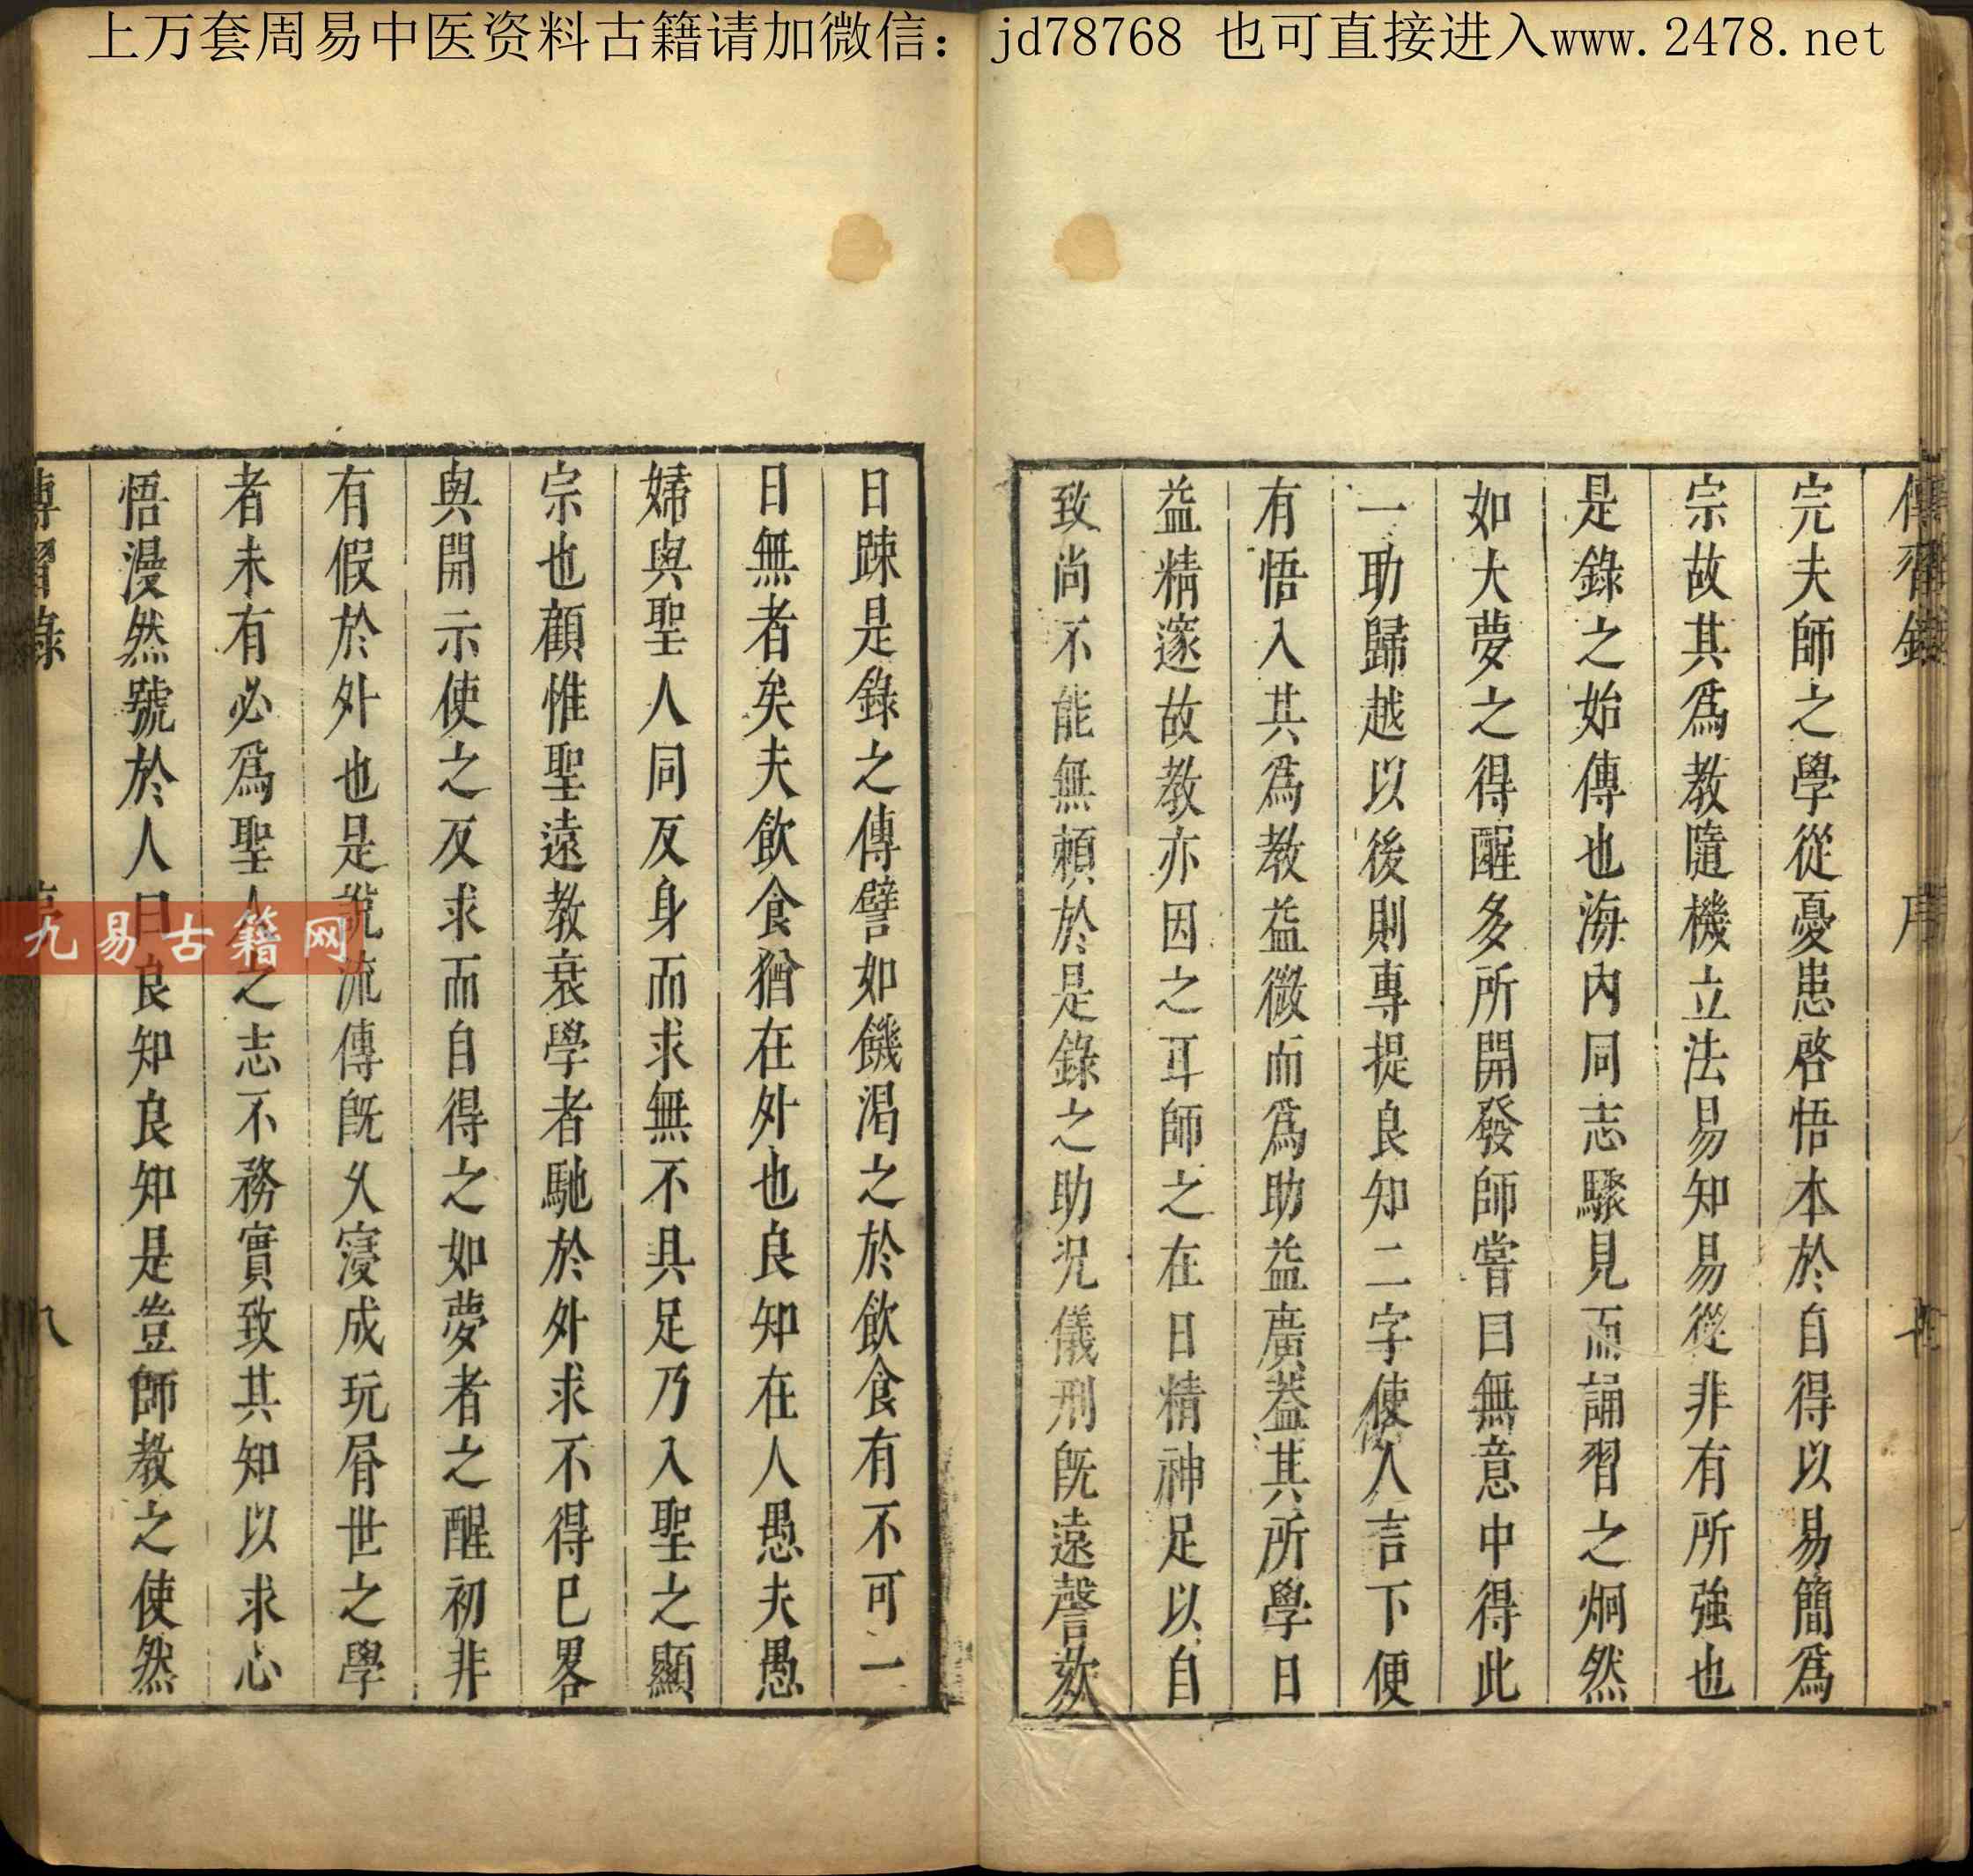 上万套周易中医资料古籍请加微信：jd78768 也可直接进入www.2478.net
傳習錄 序
完夫師之學從憂患啓悟本於自得以易簡爲
宗故其爲教隨機立法易知易從非有所強也
是錄之始傳也海內同志驟見而誦習之炯然
如大夢之得醒多所開發師嘗曰無意中得此
一助歸越以後則專提良知二字使人言下便
有悟入其爲教益微而爲助益廣葢其所學日
益精邃故教亦因之耳師之在日精神足以自
致尚不能無賴於是錄之助況儀刑旣遠謦欬
日踈是錄之傳譬如饑渴之於飲食有不可一
日無者矣夫飲食猶在外也良知在人愚夫愚
婦與聖人同反身而求無不具足乃入聖之顯
宗也顧惟聖遠教衰學者馳於外求不得已畧
與開示使之反求而自得之如夢者之醒初非
有假於外也是說流傳旣久寖成玩屑世之學
者未有必爲聖人之志不務實致其知以求心
悟漫然號於人曰良知良知是豈師教之使然
傳習錄 序 八
九易古籍网